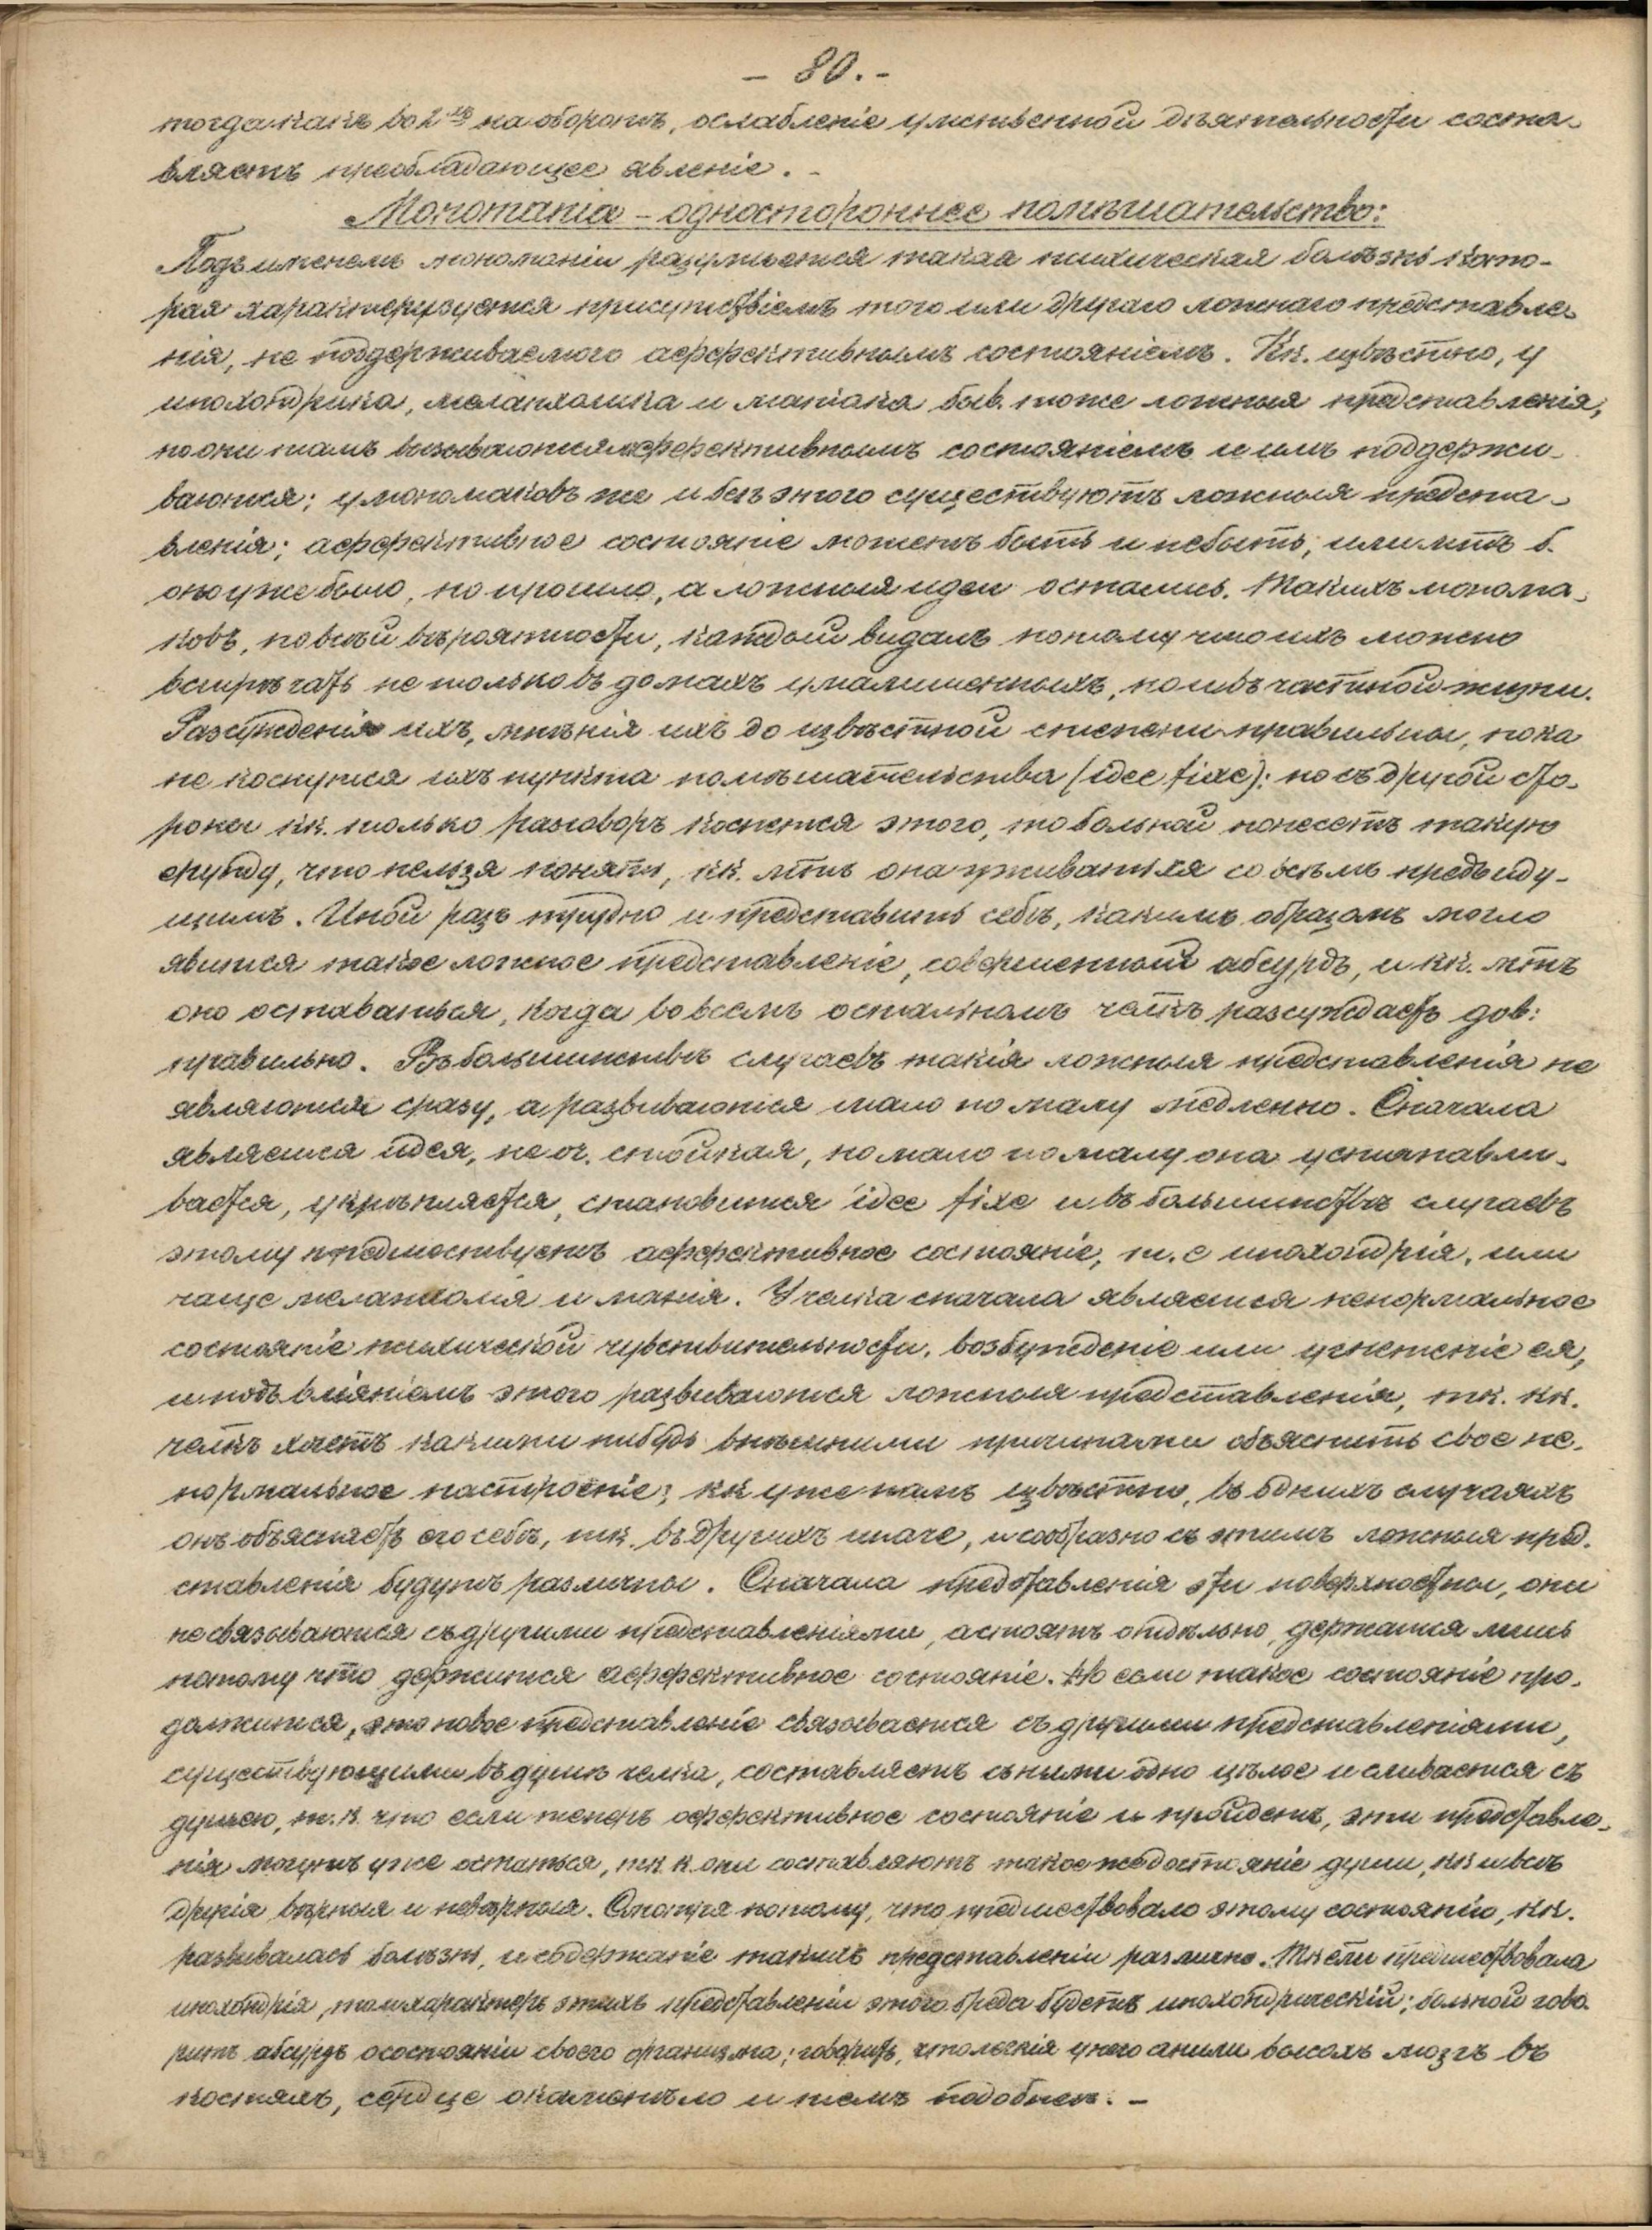 – 80. –
тогда какъ во 2хъ на оборотъ, ослабленіе умственной дѣятельности соста-
вляетъ преобладающее явленіе. –
Monomania – одностороннее помѣшательство:
Подъ именемъ мономаніи разумѣется такая психическая болѣзнь кото-
рая характеризуется присутствіемъ того или другаго ложнаго представле-
нія, не поддерживаемого аффективнымъ состояніемъ. Кк. извѣстно, у
ипохондрика, меланхолика и маніака быв. тоже ложныя представленія,
но они тамъ вызываются аффективнымъ состояніемъ и имъ поддержи-
ваются; у мономаковъ же и безъ этого существуютъ ложныя предста-
вленія; аффективное состояніе можетъ быть и небыть, или мтъ б.
оно уже было, но прошло, а ложныя идеи остались. Такихъ монома-
ковъ, по всей вѣроятности, каждый видалъ потому что ихъ можно
встрѣчать не только въ домахъ умалишенныхъ, но и въ частной жизни.
Разсужденія ихъ, мнѣнія ихъ до извѣстной степени правильны, пока
не коснутся ихъ пункта помѣшательства (idee fixe): но съ другой сто-
роны кк. только разговоръ коснется этого, то больной понесетъ такую
ерунду, что нельзя понять, кк. мтъ она уживаться со всѣмъ предъиду-
щимъ. Иной разъ трудно и представить себѣ, какимъ образомъ могло
явится такое ложное представленіе, совершенный абсурдъ, и кк. мтъ
оно оставаться, когда во всемъ остальномъ челкъ разсуждаетъ дов:
правильно. Въ большинствѣ случаевъ такія ложныя представленія не
являются сразу, а развиваются мало по малу медленно. Сначала
является идея, не оч. стойкая, но мало по малу она устанавли-
вается, укрѣпляется, становится idee fixe и въ большинствѣ случаевъ
этому предшествуетъ аффективное состояніе, т. е ипохондрія, или
чаще меланхолія и манія. У челка сначала является ненормальное
состояніе психической чувствительности, возбужденіе или угнетеніе ея,
и подъ вліяніемъ этого развиваются ложныя представленія, тк. кк.
челкъ хочетъ какими нибудь внѣшними причинами объяснить свое не-
нормальное настроеніе; кк уже намъ извѣстно, въ однихъ случаяхъ
онъ объясняетъ его себѣ, тк. въ другихъ иначе, и сообразно съ этимъ ложныя пред-
ставленія будутъ различны. Сначала представленія эти поверхностны, они
не связываются съ другими представленіями, а стоятъ отдѣльно, держатся лишь
потому что держится аффективное состояніе. Но если такое состояніе про-
должится, это новое представленіе связывается съ другими представленіями,
существующими въ душѣ челка, составляетъ съ ними одно цѣлое и сливается съ
душею, т. к. что если теперь аффективное состояніе и пройдетъ, эти представле-
нія могутъ уже остаться, тк к они составляютъ такое же достояніе души, кк и всѣ
другія вѣрныя и невѣрныя. Смотря потому, что предшествовало этому состоянію, кк.
развивалась болѣзнь, и содержаніе такихъ представленіи различно. Тк если предшествовала
ипохондрія, то и характеръ этихъ представленіи этого бреда будетъ ипохондрическій; больной гово-
ритъ абсурдъ о состояніи своего организма; говоритъ, что легкія у него сгнили высохъ мозгъ въ
костяхъ, сердце окаменѣло и тему подобное. –